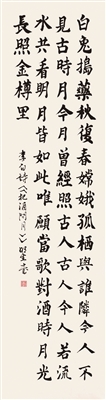 白兔搗藥秋復春嫦娥孤栖與誰隣今人不
見古時月今月曾經照古人古人今人若流
水共看明月皆如此唯願當歌對酒時月光
長照金樽里
李白詩《把酒問月》